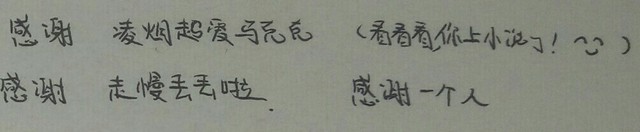 感谢 凌烟超爱马克克 (看看看,你上小说了! ^_^ )
感谢 走慢丢丢啦. 感谢一个人